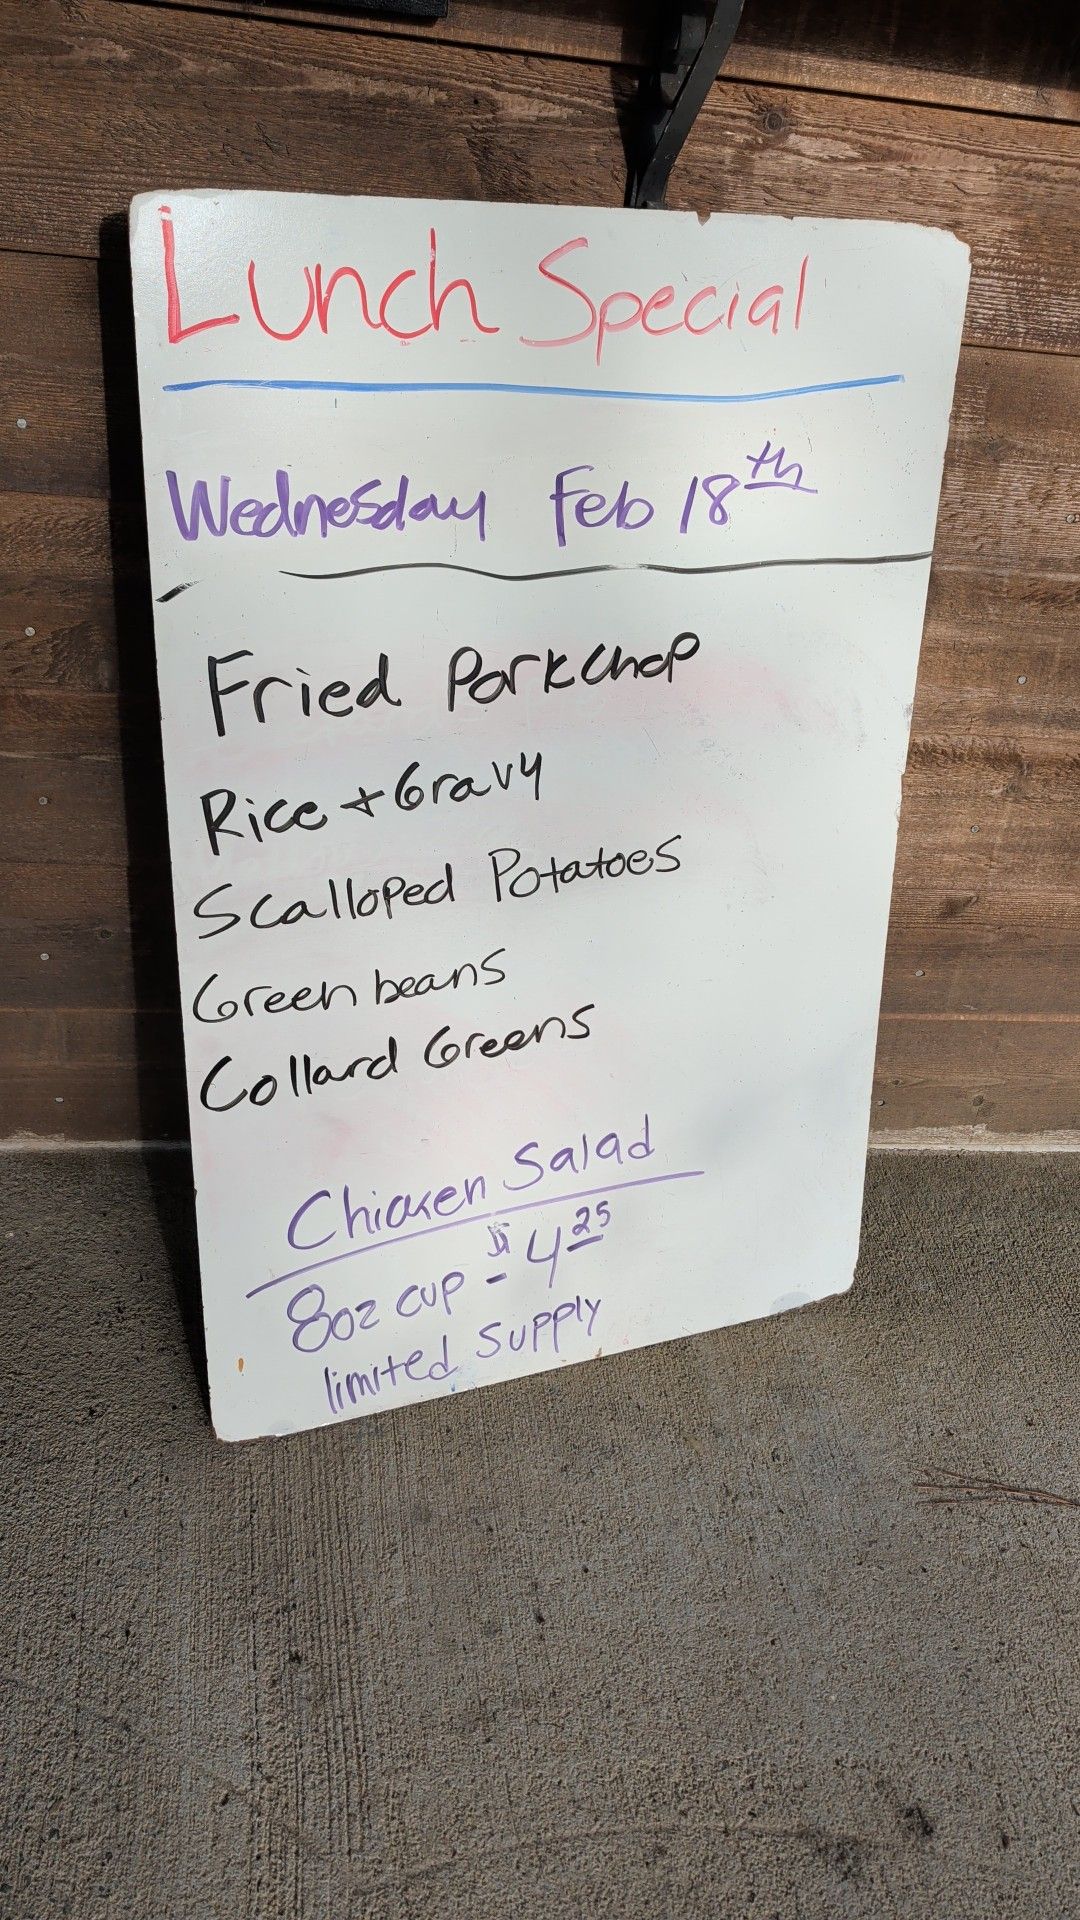 Lunch Special
Wednesday Feb 18th
Fried Porkchop
Rice + Gravy
Scalloped Potatoes
Green beans
Collard Greens
Chicken Salad
8oz cup - $4.25
limited supply